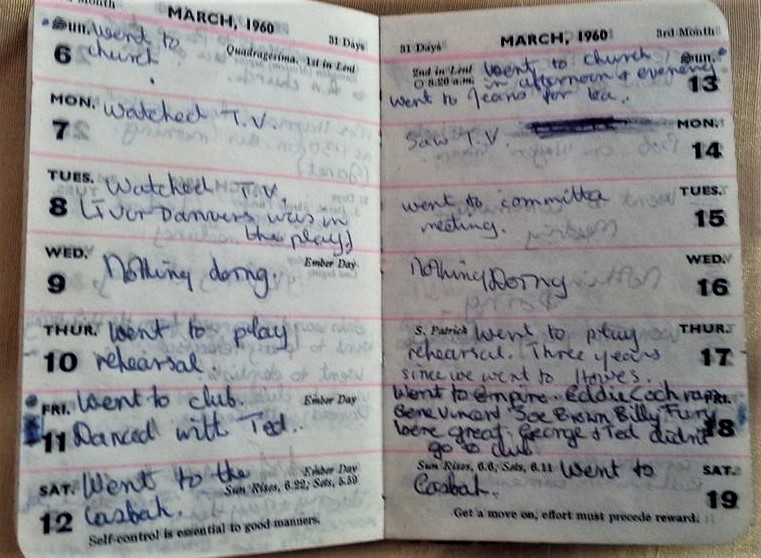 MARCH, 1960
31 Days
Sun. 6 Went to
church.
Quadragesima. 1st in Lent
MON. 7 Watched T.V.
TUES. 8 Watched T.V.
was in
the play)
WED. 9 Nothing doing.
Ember Day
THUR. 10 Went to play
rehearsal.
FRI. 11 Went to club.
Ember Day
Danced with Ted.
SAT. 12 Went to the
Ember Day
Sun Rises, 6.22; Sets, 5.59
Casbah.
Self-control is essential to good manners.
31 Days
MARCH, 1960
3rd Month
2nd in Lent
8.20 a.m.
Went to church Sun. 13
in afternoon & evening
Went to Jeans for tea.
Saw T.V. MON. 14
went to committee TUES. 15
meeting.
Nothing Doing WED. 16
S. Patrick Went to play THUR. 17
rehearsal. Three years
since we went to Howes.
Went to Empire. Eddie Cochran FRI. 18
Gene Vincent Joe Brown Billy Fury
Were great. George & Ted didn't
go to club.
Sun Rises, 6.6; Sets, 6.11 Went to SAT. 19
Casbah.
Get a move on, effort must precede reward.